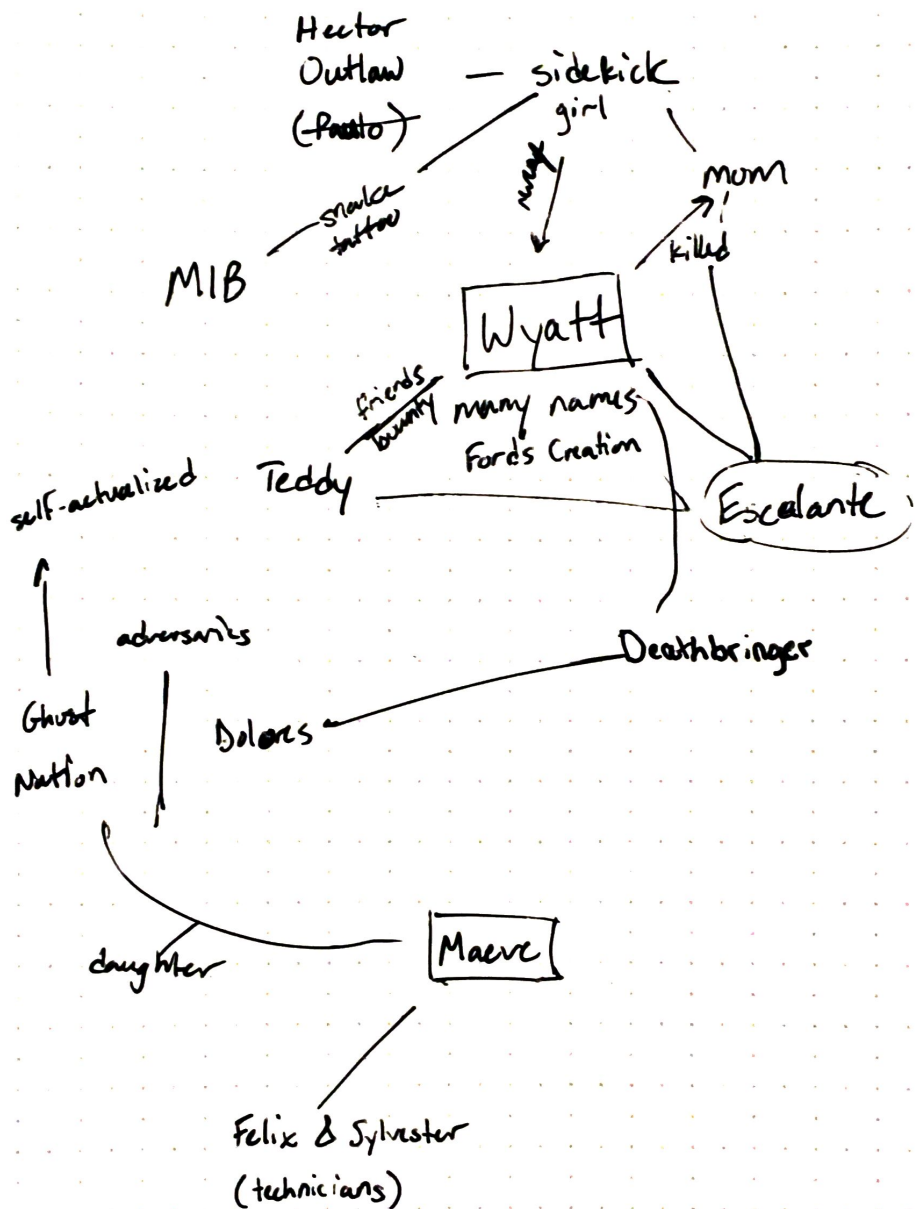 Hector
Outlaw — sidekick
(Pauto) girl
mom
snake
tattoo
revenge
killed
MIB
Wyatt
friends
bounty
many names
Fords Creation
Teddy
self-actualized
Escalante
adversaries
Deathbringer
Ghost
Nation
Dolores
Maeve
daughter
Felix & Sylvester
(technicians)